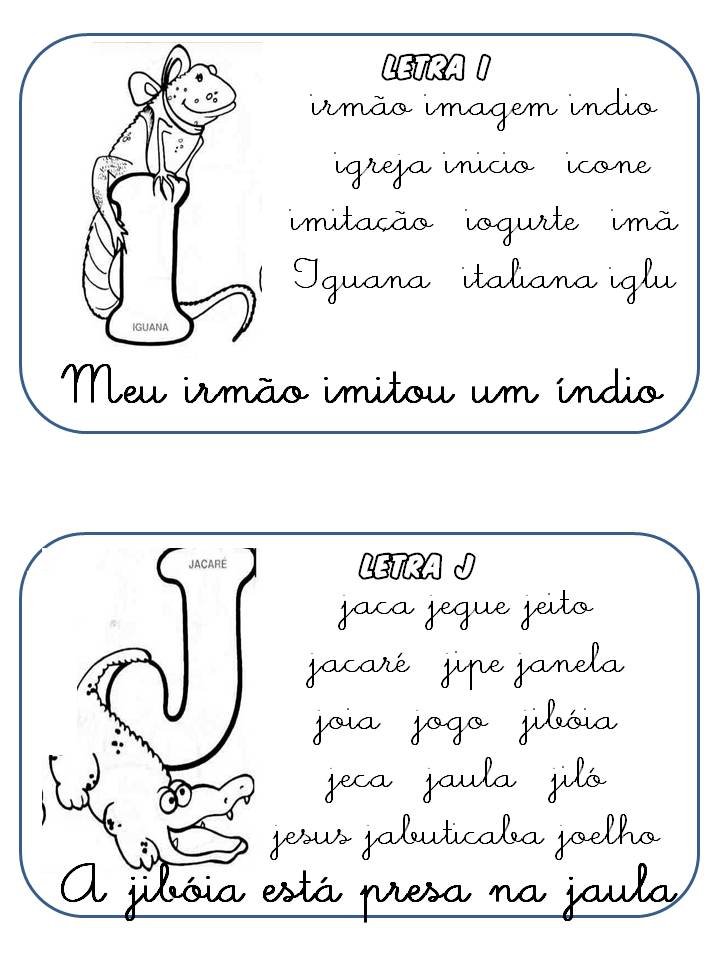 LETRA I
irmão imagem indio
igreja inicio icone
imitação iogurte imã
Iguana italiana iglu
IGUANA
Meu irmão imitou um índio
JACARÉ
LETRA J
jaca jegue jeito
jacaré jipe janela
joia jogo jibóia
jeca jaula jiló
jesus jabuticaba joelho
A jibóia está presa na jaula